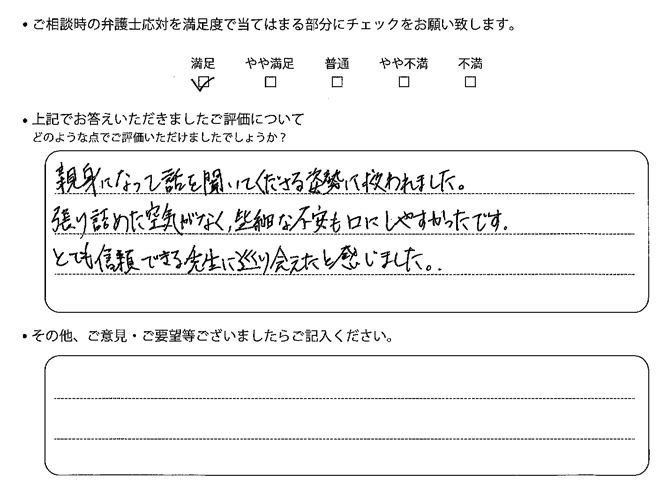 ・ご相談時の弁護士応対を満足度で当てはまる部分にチェックをお願い致します。
満足 やや満足 普通 やや不満 不満
・上記でお答えいただきましたご評価について
どのような点でご評価いただけましたでしょうか？
親身になって話を聞いてくださる姿勢に救われました。
張り詰めた空気がなく、些細な不安も口にしやすかったです。
とても信頼できる先生に巡り会えたと感じました。
・その他、ご意見・ご要望等ございましたらご記入ください。